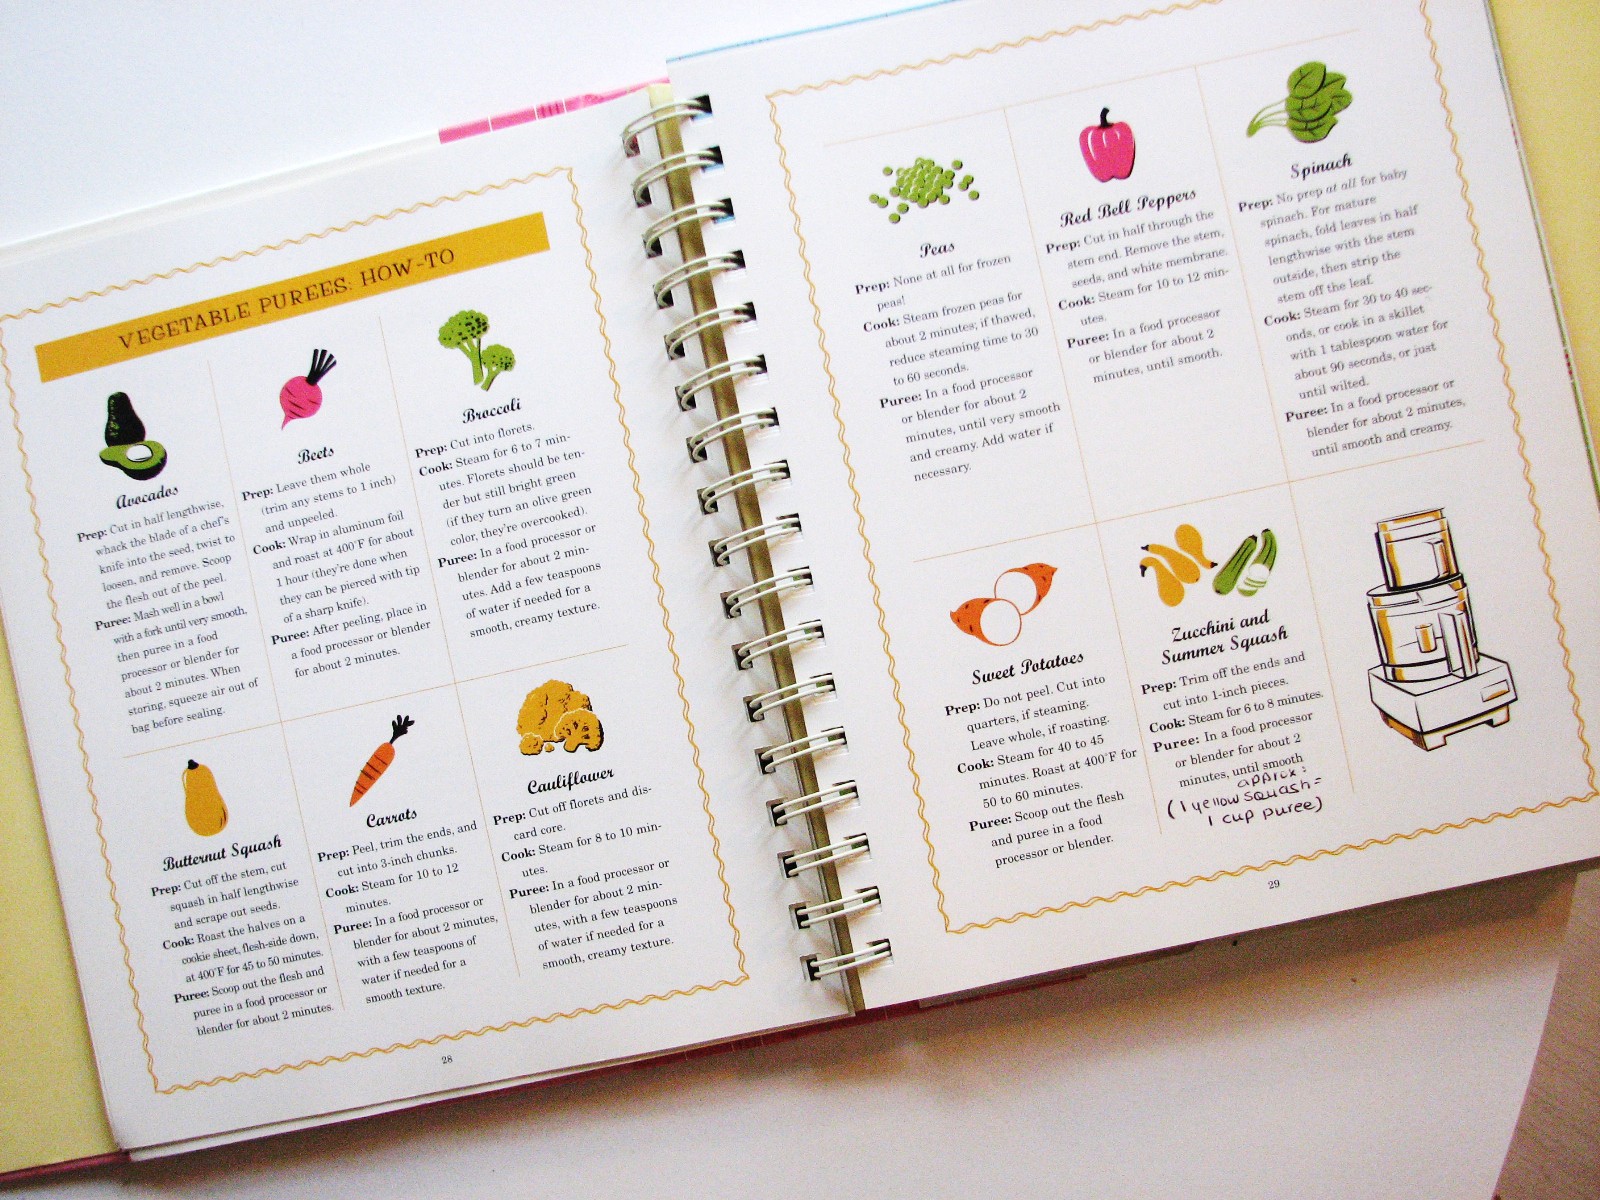 VEGETABLE PUREES: HOW-TO
Avocados
Prep: Cut in half lengthwise,
whack the blade of a chef's
knife into the seed, twist to
loosen, and remove. Scoop
the flesh out of the peel.
Puree: Mash well in a bowl
with a fork until very smooth,
then puree in a food
processor or blender for
about 2 minutes. When
storing, squeeze air out of
bag before sealing.
Beets
Prep: Leave them whole
(trim any stems to 1 inch)
and unpeeled.
Cook: Wrap in aluminum foil
and roast at 400°F for about
1 hour (they're done when
they can be pierced with tip
of a sharp knife).
Puree: After peeling, place in
a food processor or blender
for about 2 minutes.
Broccoli
Prep: Cut into florets.
Cook: Steam for 6 to 7 min-
utes. Florets should be ten-
der but still bright green
(if they turn an olive green
color, they're overcooked).
Puree: In a food processor or
blender for about 2 min-
utes. Add a few teaspoons
of water if needed for a
smooth, creamy texture.
Butternut Squash
Prep: Cut off the stem, cut
squash in half lengthwise
and scrape out seeds.
Cook: Roast the halves on a
cookie sheet, flesh-side down,
at 400°F for 45 to 50 minutes.
Puree: Scoop out the flesh and
puree in a food processor or
blender for about 2 minutes.
Carrots
Prep: Peel, trim the ends, and
cut into 3-inch chunks.
Cook: Steam for 10 to 12
minutes.
Puree: In a food processor or
blender for about 2 minutes,
with a few teaspoons of
water if needed for a
smooth texture.
Cauliflower
Prep: Cut off florets and dis-
card core.
Cook: Steam for 8 to 10 min-
utes.
Puree: In a food processor or
blender for about 2 min-
utes, with a few teaspoons
of water if needed for a
smooth, creamy texture.
28
Peas
Prep: None at all for frozen
peas!
Cook: Steam frozen peas for
about 2 minutes; if thawed,
reduce steaming time to 30
to 60 seconds.
Puree: In a food processor
or blender for about 2
minutes, until very smooth
and creamy. Add water if
necessary.
Red Bell Peppers
Prep: Cut in half through the
stem end. Remove the stem,
seeds, and white membrane.
Cook: Steam for 10 to 12 min-
utes.
Puree: In a food processor
or blender for about 2
minutes, until smooth.
Spinach
Prep: No prep at all for baby
spinach. For mature
spinach, fold leaves in half
lengthwise with the stem
outside, then strip the
stem off the leaf.
Cook: Steam for 30 to 40 sec-
onds, or cook in a skillet
with 1 tablespoon water for
about 90 seconds, or just
until wilted.
Puree: In a food processor or
blender for about 2 minutes,
until smooth and creamy.
Sweet Potatoes
Prep: Do not peel. Cut into
quarters, if steaming.
Leave whole, if roasting.
Cook: Steam for 40 to 45
minutes. Roast at 400°F for
50 to 60 minutes.
Puree: Scoop out the flesh
and puree in a food
processor or blender.
Zucchini and
Summer Squash
Prep: Trim off the ends and
cut into 1-inch pieces.
Cook: Steam for 6 to 8 minutes.
Puree: In a food processor
or blender for about 2
minutes, until smooth
approx:
(1 yellow squash =
1 cup puree)
29